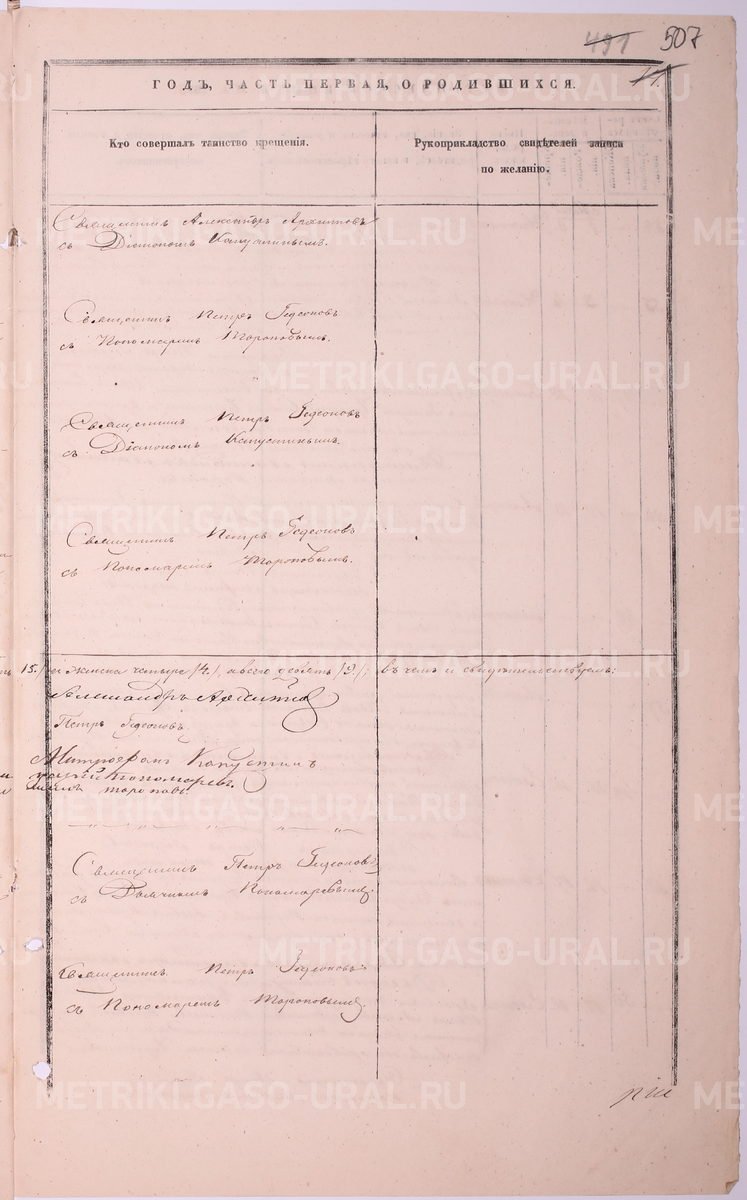 491 507
11.
ГОДЪ, ЧАСТЬ ПЕРВАЯ, О РОДИВШИХСЯ.
Кто совершалъ таинство крещенія.
Рукоприкладство свидѣтелей записи
по желанію.
Священникъ Александръ Архиповъ
съ Діакономъ Капустинымъ.
Священникъ Петръ Гедеоновъ
съ Пономаремъ Тороповымъ.
Священникъ Петръ Гедеоновъ
съ Діакономъ Капустинымъ.
Священникъ Петръ Гедеоновъ
съ Пономаремъ Тороповымъ.
15.) и женска четыре /4/, а всего девять /9/; въ чемъ и свидѣтельствуемъ:
Александръ Архиповъ
Петръ Гедеоновъ
Митрофанъ Капустинъ
Пономаревъ.
Тороповъ.
Священникъ Петръ Гедеоновъ
съ Дьячкомъ Пономаревымъ.
Священникъ Петръ Гедеоновъ
съ Пономаремъ Тороповымъ.
METRIKI.GASO-URAL.RU